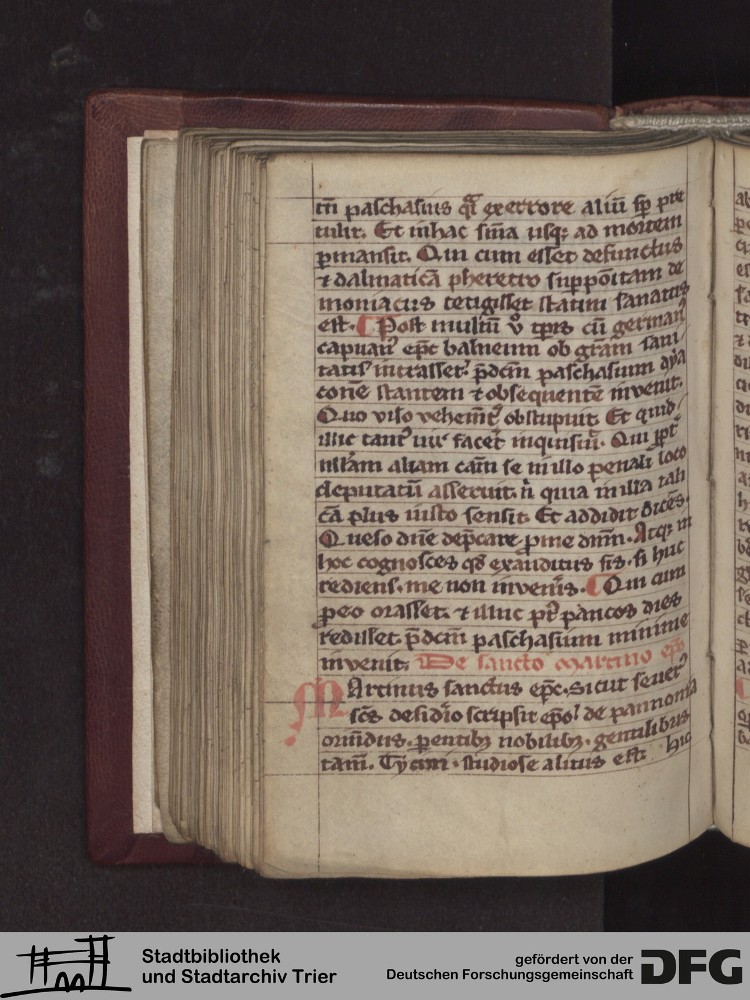 tn̄ paschasius qͣ ex errore aliū sꝑ pre
tulit. Et in hac sn̄ia usqꝫ ad mortem
ꝑmansit. Qui cum esset defunctus
⁊ dalmaticā pheretro suppōitam de
moniacus tetigisset statim sanatus
est. Post multū ꝟo tꝑis cū german⁹
capuan⁹ ep̄c balneum ob gr̄am sani
tatis intrasset. p̄dcm̄ paschasium dya
conē stantem ⁊ obsequentē invenit.
Quo viso vehemēt᷑ obstupuit. Et quid
illic tant⁹ uir facet᷑ inquisiu᷑. Qui ꝓpt᷑
nllam aliam cām se in illo penali loco
deputatū asseruit. n̄ quia in illa tali
cā plus iusto sensit. Et addidit dicēs.
Queso dn̄e dep̄care ꝓ me dnm̄. Atqꝫ in
hoc cognosces qd̓ exauditus sīs. si huc
rediens. me non inveneīs. Qui cum
ꝑ eo orasset. ⁊ illuc pt᷑ paucos dies
redisset. p̄dcm̄ paschasium minime
invenit. De sancto martino ep̄o
Martinus sanctus ep̄c. sicut seuer⁹
scs̄ desid̓io scripsit ep̄o. de pannonia
oriūdus. ꝑentibꝫ nobilibꝫ. gentilibus
tam̄. Tycini. studiose alitus est. hic
Stadtbibliothek
und Stadtarchiv Trier
gefördert von der
Deutschen Forschungsgemeinschaft
DFG